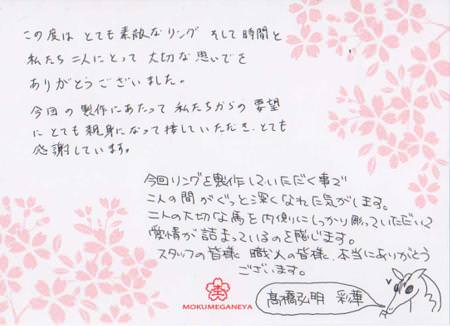 この度は とても素敵なリング そして時間と
私たち二人にとって 大切な思いでを
ありがとうございました。
今回の製作にあたって 私たちからの要望
に とても親身になって接していただき、とても
感謝しています。
今回リングを製作していただく事で
二人の間がぐっと深くなれた気がします。
二人の大切な馬を内側にしっかり彫っていただいて
愛情が詰まっているのを感じます。
スタッフの皆様 職人の皆様、本当にありがとう
ございます。
髙橋弘明 彩華
MOKUMEGANEYA